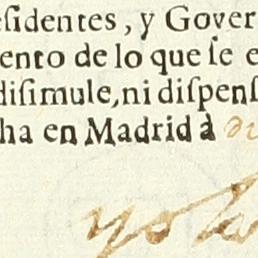 ſidentes, y Gover
ento de lo que ſe e
diſimule, ni diſpenſ
ha en Madrid à